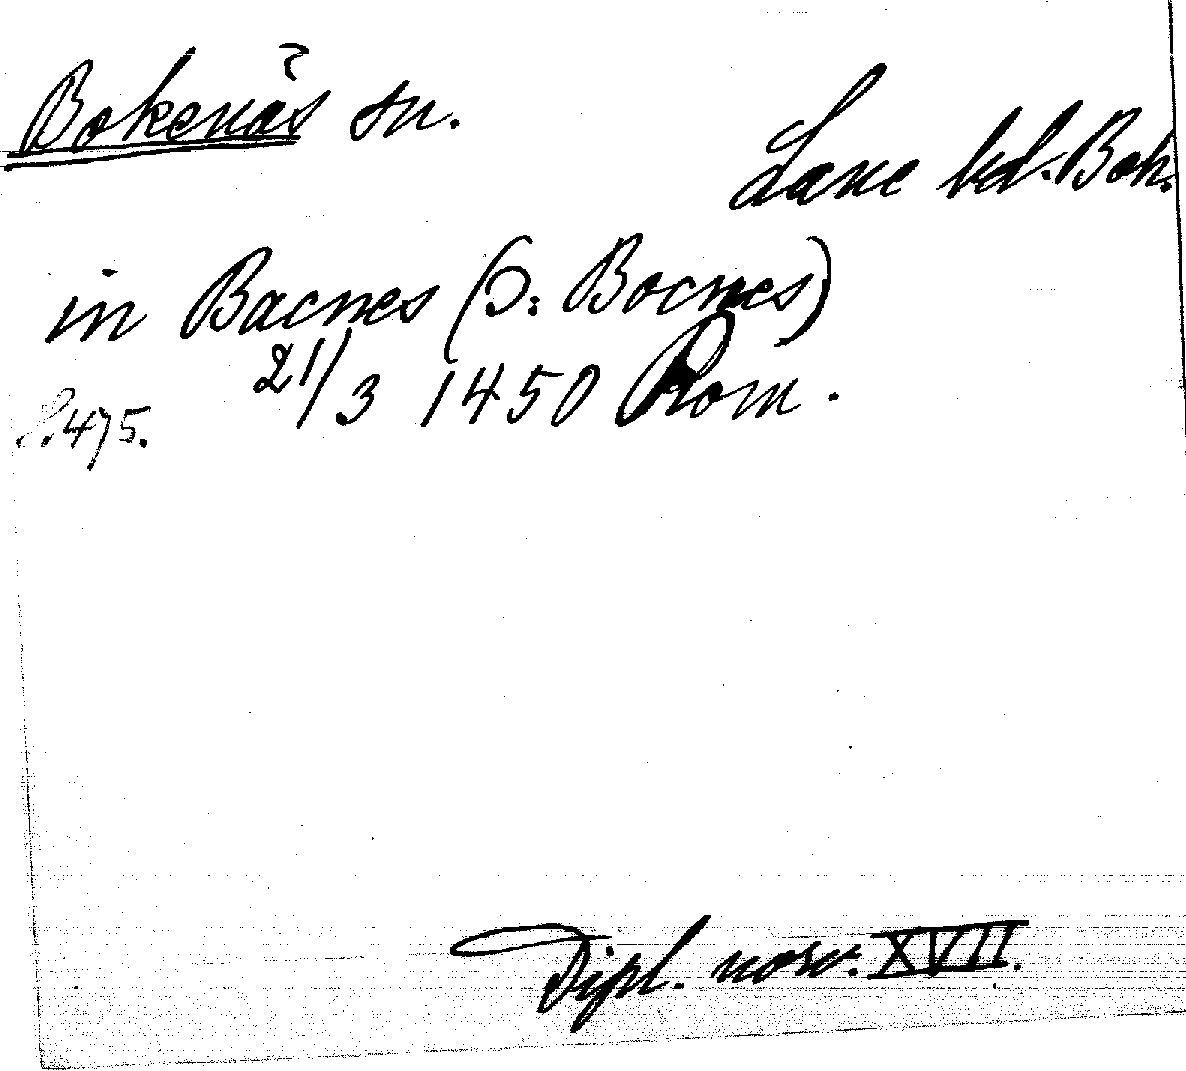 Bokenäs sn.
Lane hd. Boh.
in Bacnes (ɔ: Bocnes)
21/3 1450 Rom.
S. 475.
Dipl. norv. XVII.